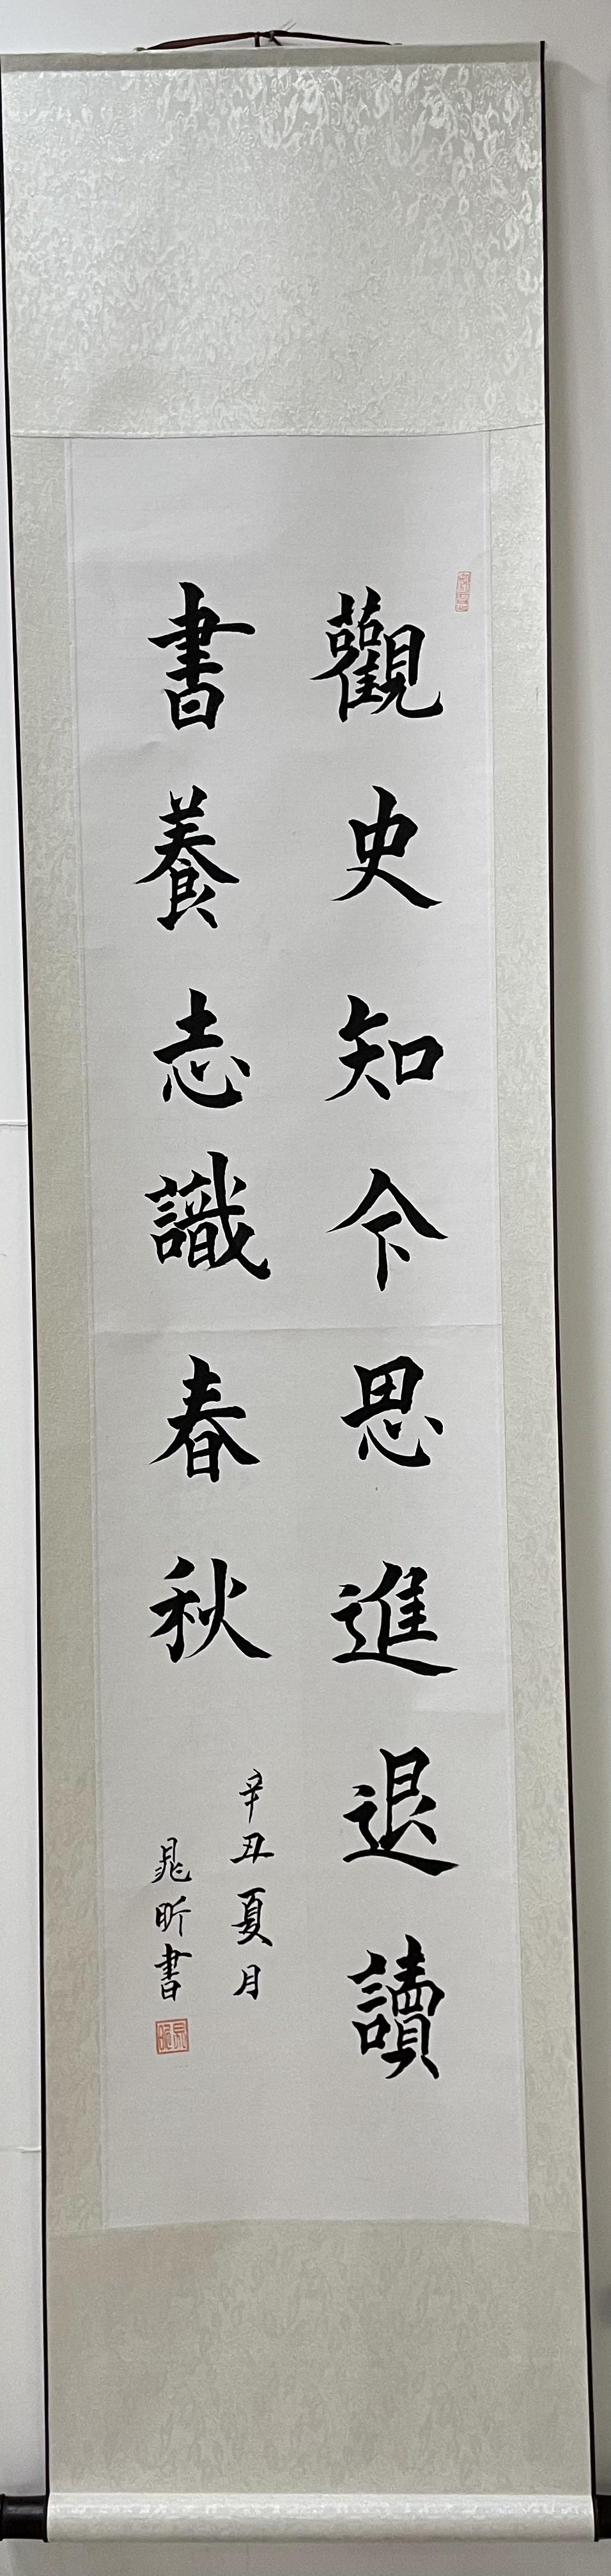 觀史知今思進退讀
書養志識春秋
辛丑夏月
晁昕書